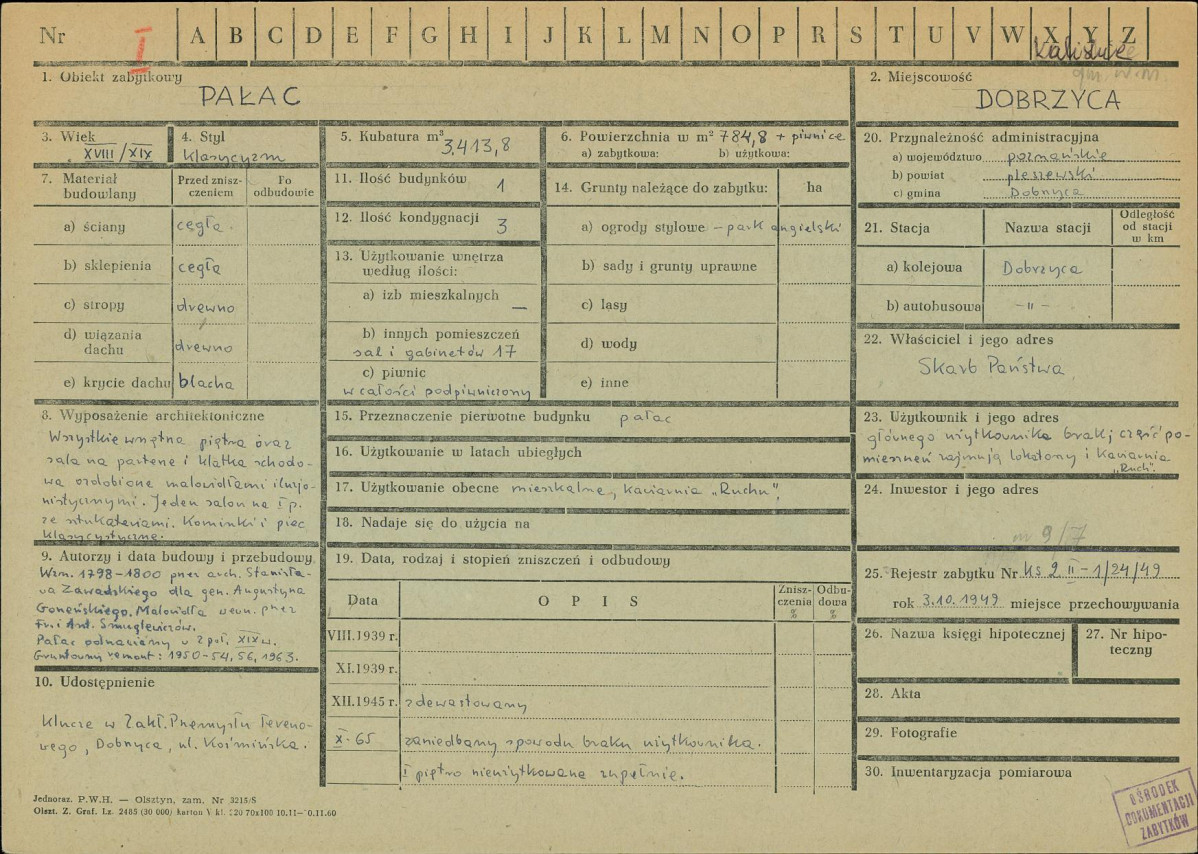 Nr I A B C D E F G H I J K L M N O P R S T U V W X Y Z
kaliskie
gm. w m.
1. Obiekt zabytkowy
PAŁAC
2. Miejscowość
DOBRZYCA
3. Wiek
XVIII/XIX
4. Styl
klasycyzm
5. Kubatura m³
3.413,8
6. Powierzchnia w m² 784,8 + piwnice
a) zabytkowa: b) użytkowa:
7. Materiał budowlany
Przed zniszczeniem
Po odbudowie
a) ściany cegła
b) sklepienia cegła
c) stropy drewno
d) wiązania dachu drewno
e) krycie dachu blacha
8. Wyposażenie architektoniczne
Wszystkie wnętrza piętra oraz
sala na parterze i klatka schodo-
wa ozdobione malowidłami iluzjo-
nistycznymi. Jeden salon na I p.
ze sztukateriami. Kominki i piec
klasycystyczne.
9. Autorzy i data budowy i przebudowy
Wzn. 1798-1800 przez arch. Stanisła-
wa Zawadzkiego dla gen. Augustyna
Gorzeńskiego. Malowidła wewn. przez
Fr. i Ant. Smuglewiczów.
Pałac podniszczony w 2 poł. XIX w.
Gruntowny remont: 1950-54, 56, 1963.
10. Udostępnienie
Klucze w Zakł. Przemysłu Tereno-
wego, Dobrzyca, ul. Koźmińska.
11. Ilość budynków 1
12. Ilość kondygnacji 3
13. Użytkowanie wnętrza
według ilości:
a) izb mieszkalnych —
b) innych pomieszczeń
sal i gabinetów 17
c) piwnic
w całości podpiwniczony
14. Grunty należące do zabytku: ha
a) ogrody stylowe – park angielski
b) sady i grunty uprawne
c) lasy
d) wody
e) inne
15. Przeznaczenie pierwotne budynku pałac
16. Użytkowanie w latach ubiegłych
17. Użytkowanie obecne mieszkalne, kawiarnia „Ruchu”.
18. Nadaje się do użycia na
19. Data, rodzaj i stopień zniszczeń i odbudowy
Data
O P I S
Zniszczenia %
Odbudowa %
VIII.1939 r.
XI.1939 r.
XII.1945 r. zdewastowany
X-65 zaniedbany z powodu braku użytkownika.
I piętro nieużytkowane zupełnie.
20. Przynależność administracyjna
a) województwo poznańskie
b) powiat pleszewski
c) gmina Dobrzyca
21. Stacja
Nazwa stacji
Odległość od stacji w km
a) kolejowa Dobrzyca
b) autobusowa –"–
22. Właściciel i jego adres
Skarb Państwa
23. Użytkownik i jego adres
głównego użytkownika brak; część po-
mieszczeń zajmują lokatorzy i kawiarnia
„Ruch”.
24. Inwestor i jego adres
m 9/7
25. Rejestr zabytku Nr ks 2 II-1/24/49
rok 3.10.1949 miejsce przechowywania
26. Nazwa księgi hipotecznej
27. Nr hipoteczny
28. Akta
29. Fotografie
30. Inwentaryzacja pomiarowa
Jednoraz. P.W.H. — Olsztyn, zam. Nr 3215/S
OŚRODEK
DOKUMENTACJI
ZABYTKÓW